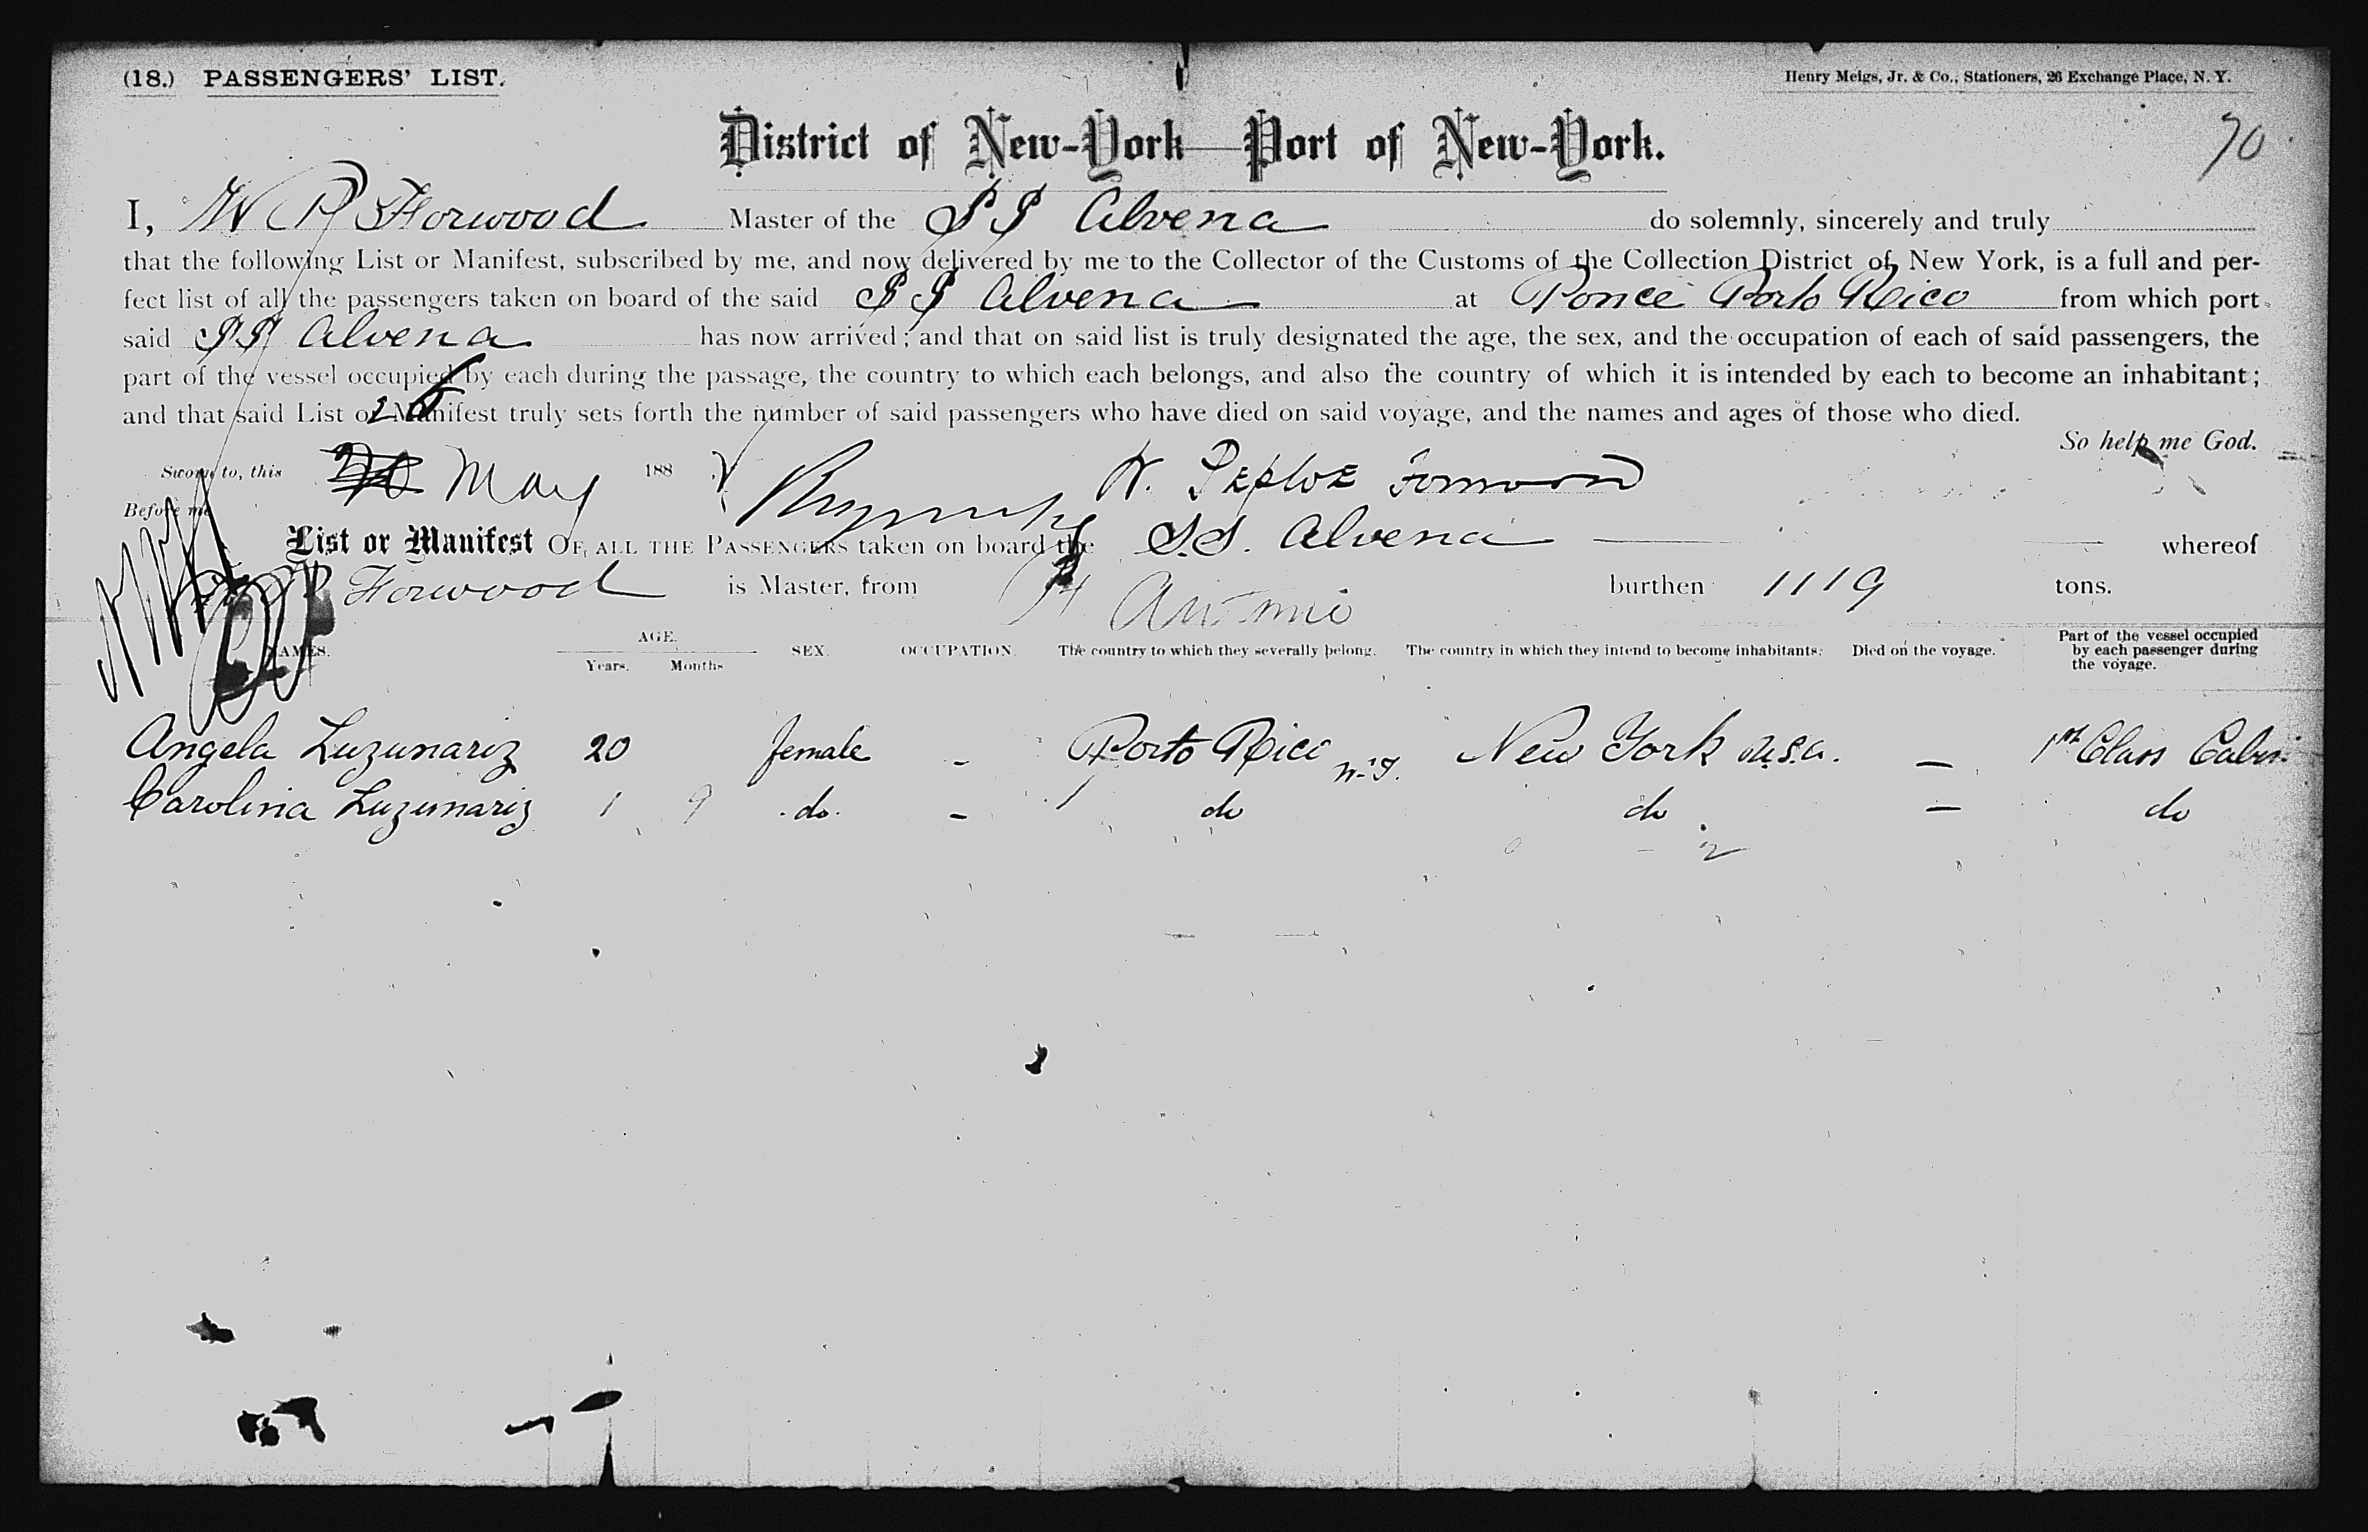 (18.) PASSENGERS' LIST.
Henry Meigs, Jr. & Co., Stationers, 26 Exchange Place, N. Y.
70
District of New-York—Port of New-York.
I, W P Horwood Master of the SS Alvena do solemnly, sincerely and truly
that the following List or Manifest, subscribed by me, and now delivered by me to the Collector of the Customs of the Collection District of New York, is a full and per-
fect list of all the passengers taken on board of the said SS Alvena at Ponce Porto Rico from which port
said SS Alvena has now arrived; and that on said list is truly designated the age, the sex, and the occupation of each of said passengers, the
part of the vessel occupied by each during the passage, the country to which each belongs, and also the country of which it is intended by each to become an inhabitant;
and that said List or Manifest truly sets forth the number of said passengers who have died on said voyage, and the names and ages of those who died.
So help me God.
Sworn to, this May 188
Before me
List or Manifest OF ALL THE PASSENGERS taken on board the S.S. Alvena whereof
Horwood is Master, from burthen 1119 tons.
NAMES. AGE. Years. Months SEX. OCCUPATION. The country to which they severally belong. The country in which they intend to become inhabitants. Died on the voyage. Part of the vessel occupied by each passenger during the voyage.
Angela Luzunariz 20 female - Porto Rico W.I. New York U.S.A. — 1st Class Cabin
Carolina Luzunariz 1 9 do. - do do — do